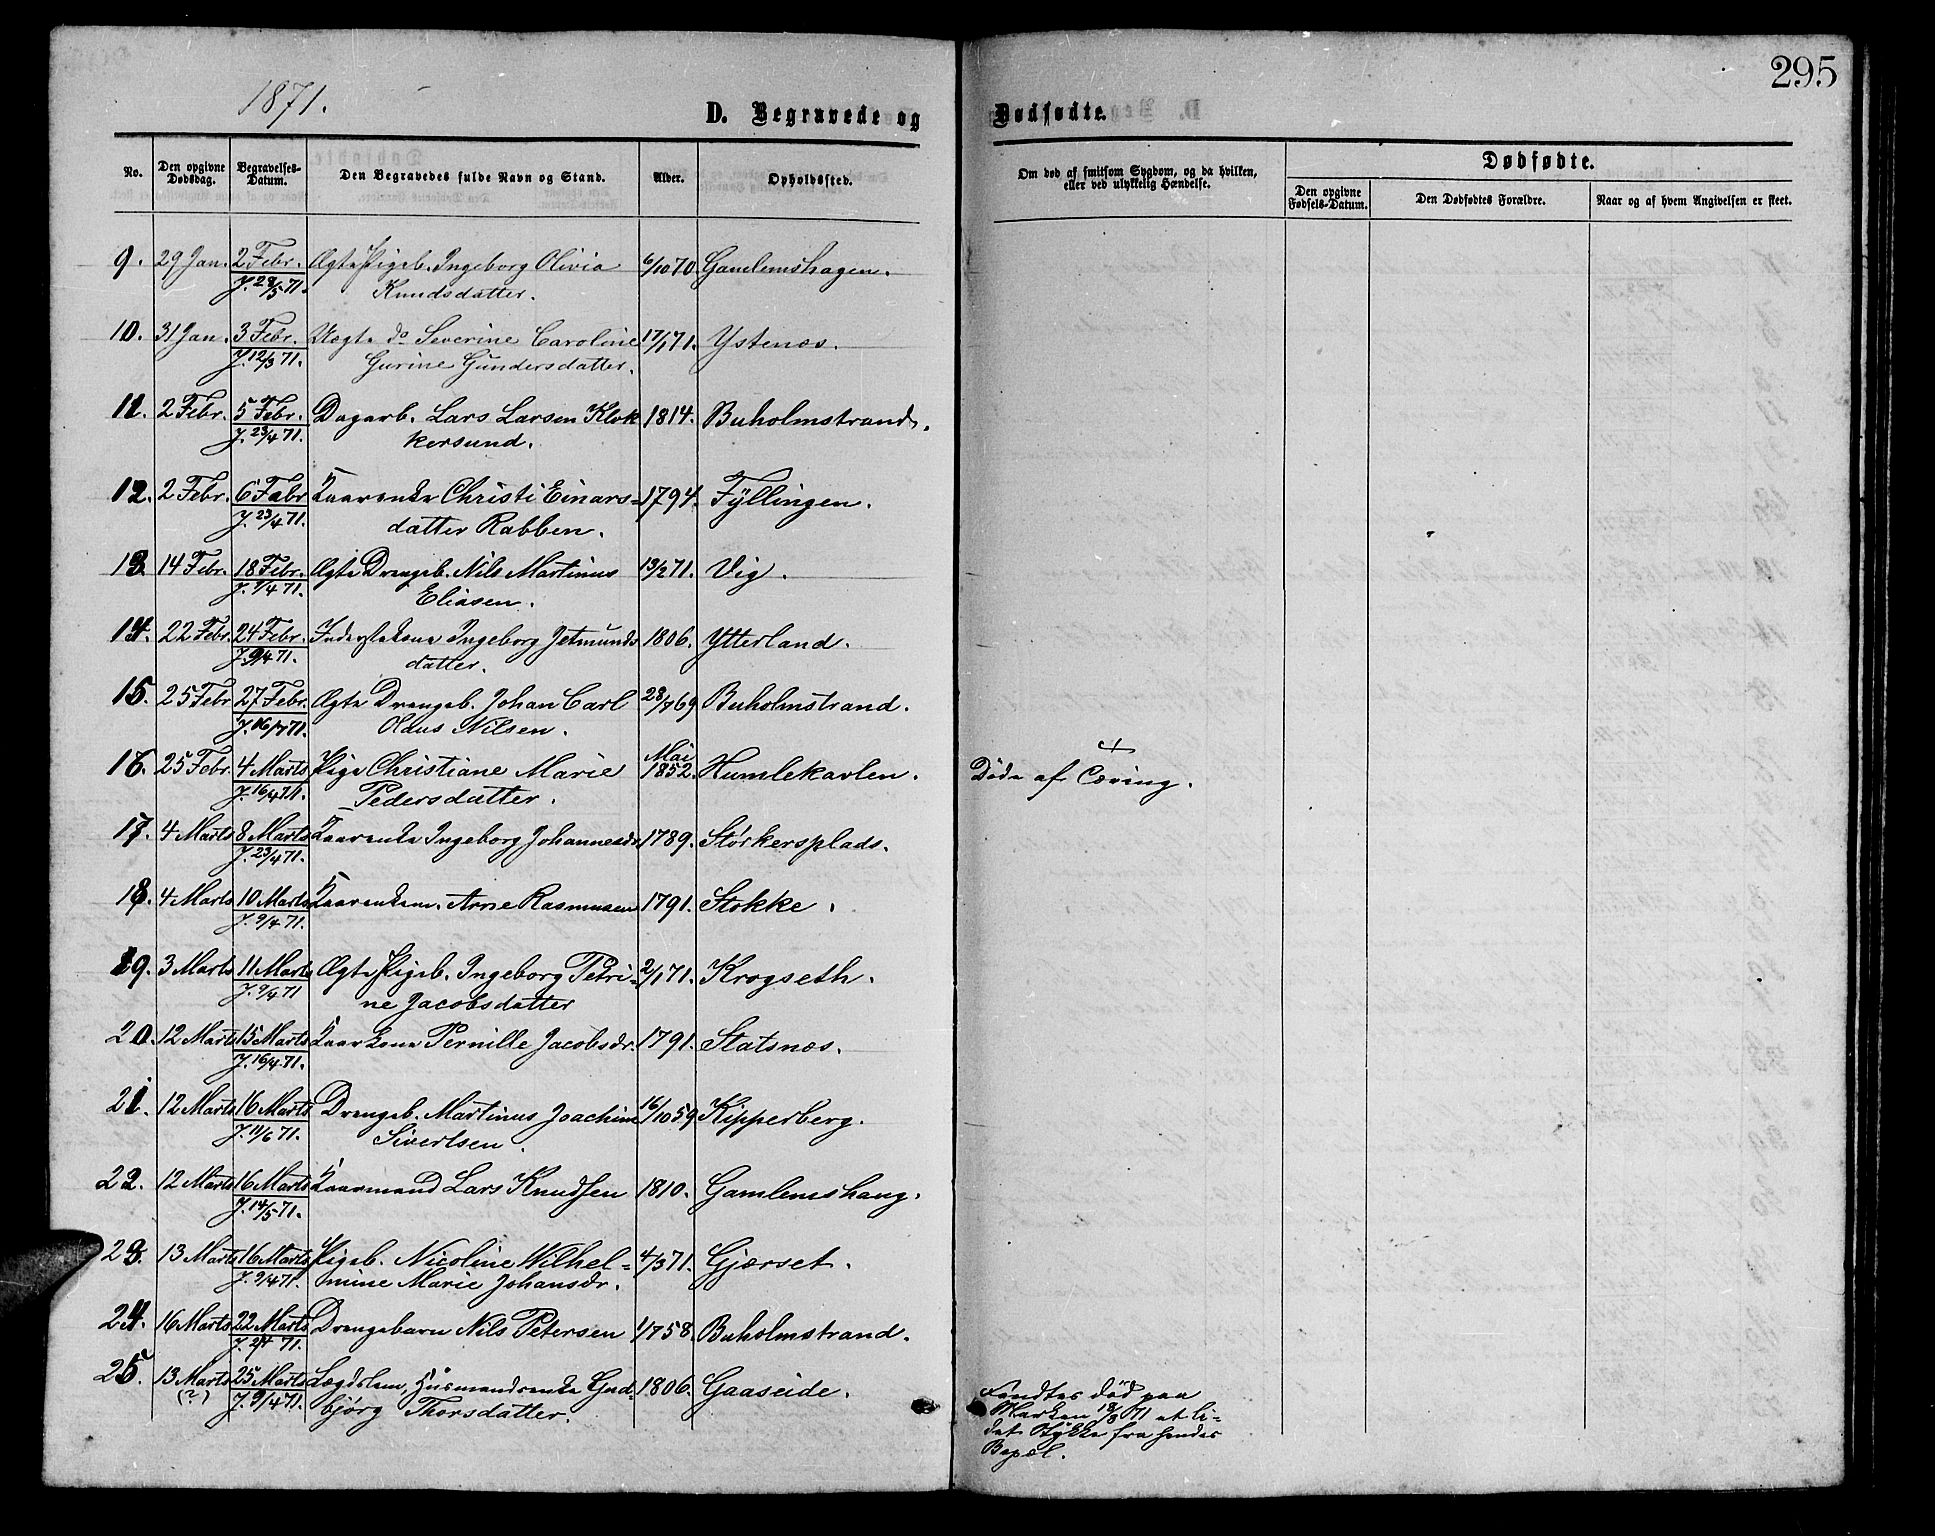 295
1871.
D. Begravede og Dødfødte.
No.
Den opgivne Dødsdag.
Begravelses-Datum.
Den Begravedes fulde Navn og Stand.
Alder.
Opholdssted.
Om død af smitsom Sygdom, og da hvilken, eller ved ulykkelig Hændelse.
Dødfødte.
Den opgivne Fødsels-Datum.
Den Dødfødtes Forældre.
Naar og af hvem Angivelsen er skeet.
9. 29 Jan. 2 Febr. Ægte Pigeb. Ingeborg Olivia 6/10 70 Gamlemshagen.
J. 28/5 71. Knudsdatter.
10. 31 Jan. 3 Febr. Uægte do Severine Caroline 17/1 71. Ystenæs.
J. 12/3 71. Gurine Gundersdatter.
11. 2 Febr. 5 Febr. Dagarb. Lars Larsen Klok 1814. Buholmstrand.
J. 23/4 71. kersund.
12. 2 Febr. 6 Febr Kaarenke Christi Einars- 1794. Fyllingen.
J. 23/4 71. datter Rabben.
13. 14 Febr. 18 Febr. Ægte Drengeb. Nils Martinus 13/2 71. Vig.
J. 9/4 71. Eliasen.
14. 22 Febr. 24 Febr. Inderstekone Ingeborg Jetmunds 1806. Ytterland.
J. 9/4 71. datter.
15. 25 Febr 27 Febr. Ægte Drengeb. Johan Carl 28/7 69 Buholmstrand.
J. 16/7 71. Olaus Nilsen.
16. 25 Febr. 4 Marts Pige Christiane Marie Mai 1852. Humlekavlen. Døde af Tæring.
J. 16/4 71. Pedersdatter.
17. 4 Marts 8 Marts Kaarenke Ingeborg Johannesdr 1789. Størkersplads.
J. 23/4 71.
18. 4 Marts 10 Marts Kaarenkem. Arne Rasmusen 1791. Stokke.
J. 9/4 71.
19. 3 Marts 11 Marts Ægte Pigeb. Ingeborg Petri- 2/1 71. Krogseth.
J. 9/4 71 ne Jacobsdatter
20. 12 Marts 15 Marts Kaarkone Pernille Jacobsdr. 1791. Statsnæs.
J. 16/4 71.
21. 12 Marts 16 Marts Drengeb. Martinus Joachim 16/10 59 Kipperberg.
J. 11/6 71. Sivertsen.
22. 12 Marts 16 Marts Kaarmand Lars Knudsen 1810. Gamlemshaug.
J. 14/5 71.
23. 13 Marts 16 Marts Pigeb. Nicoline Wilhel- 4/3 71. Gjærset.
J. 9/4 71. mine Marie Johansdr.
24. 16 Marts 22 Marts Drengebarn Nils Petersen 1/7 58. Buholmstrand.
J. 2/4 71.
25. 13 Marts 25 Marts Lægdslem, Husmandsenke Gud- 1806. Gaaseide. Fandtes død paa
(?) J. 9/4 71. bjørg Thorsdatter. Marken 18/3 71 et li-
det Stykke fra hendes
Bopæl.